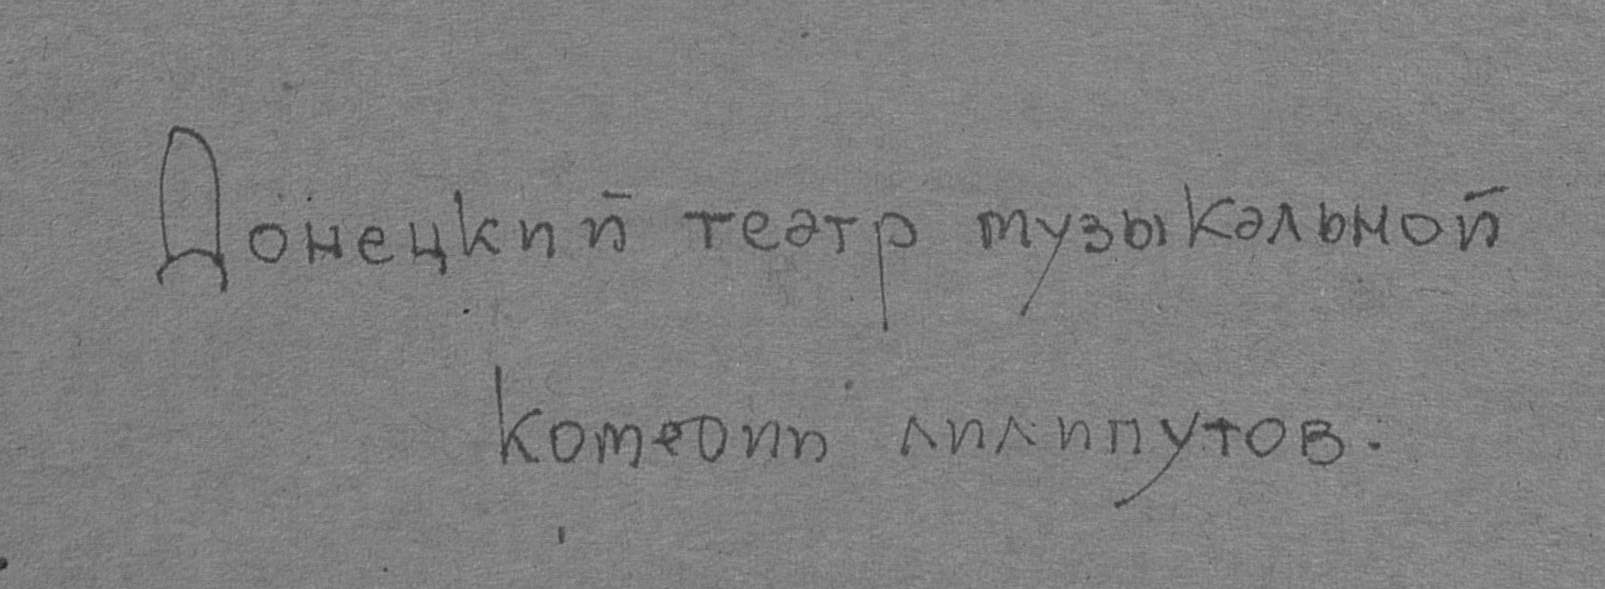 Донецкий театр музыкальной
комедии лилипутов.